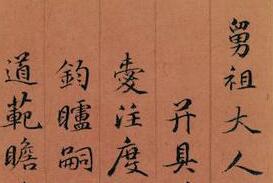 舅祖大人
并具
臺注度
鈞臚嗣
道範瞻